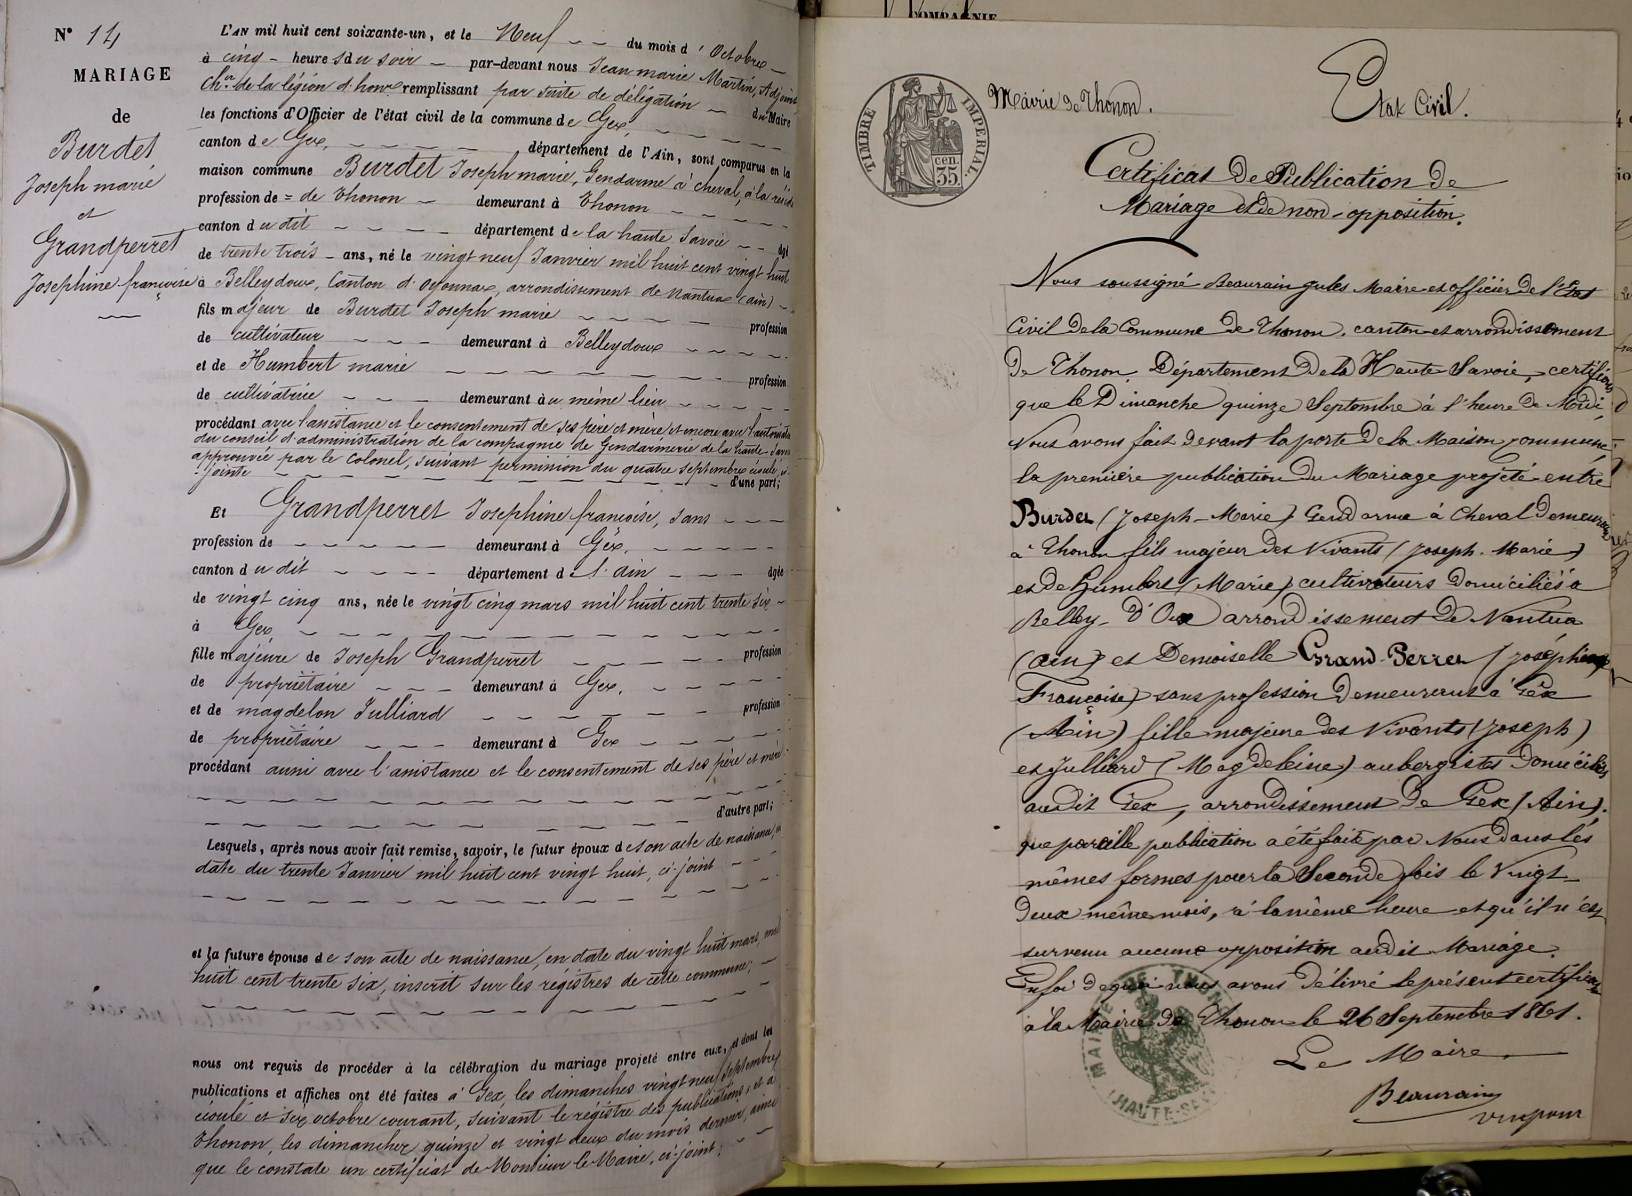 N° 14
MARIAGE
de
Burdet
Joseph marie
et
Grandperret
Josephine françoise
L'AN mil huit cent soixante-un, et le Neuf du mois d'Octobre
à cinq heures du soir par-devant nous Jean marie Martin, Adjoint
Ch.er de la légion d'honr remplissant par suite de délégation du Maire
les fonctions d'Officier de l'état civil de la commune de Gex,
canton de Gex, département de l'Ain, sont comparus en la
maison commune Burdet Joseph marie, Gendarme à cheval, à la résid
profession de = de Thonon demeurant à Thonon
canton du dit département de la haute Savoie âgé
de trente trois ans, né le vingt neuf Janvier mil huit cent vingt huit
à Belleydoux, Canton d'oyonnax, arrondissement de Nantua (ain)
fils majeur de Burdet Joseph marie profession
de cultivateur demeurant à Belleydoux
et de Humbert marie profession
de cultivatrice demeurant au même lieu
procédant avec l'assistance et le consentement de ses père et mère et encore avec l'autorisat
du conseil d'administration de la compagnie de Gendarmerie de la haute-Savoie
approuvée par le Colonel, suivant permission du quatre septembre écoulé, ci-
jointe d'une part;
Et Grandperret Josephine françoise, sans
profession de demeurant à Gex,
canton du dit département de l'ain âgée
de vingt cinq ans, née le vingt cinq mars mil huit cent trente six
à Gex
fille majeure de Joseph Grandperret profession
de propriétaire demeurant à Gex,
et de magdelon Julliard profession
de propriétaire demeurant à Gex
procédant aussi avec l'assistance et le consentement de ses père et mère
d'autre part;
Lesquels, après nous avoir fait remise, savoir, le futur époux de son acte de naissance, en
date du trente Janvier mil huit cent vingt huit, ci-joint
et la future épouse de son acte de naissance, en date du vingt huit mars, mil
huit cent trente six, inscrit sur les régistres de cette commune;
nous ont requis de procéder à la célébration du mariage projeté entre eux, et dont les
publications et affiches ont été faites à Gex, les dimanches vingt neuf septembre
écoulé et six octobre courant, suivant le régistre des publications; et à
Thonon, les dimanches quinze et vingt deux du mois dernier, ainsi
que le constate un certificat de Monsieur le Maire, ci-joint;
COMPAGNIE
TIMBRE IMPERIAL
35 cen.
Mairie de Thonon.
Etat Civil.
Certificat de Publication de
Mariage et de non-opposition.
Nous soussigné Beaurain jules Maire et officier de l'Etat
Civil de la Commune de Thonon, canton et arrondissement
de Thonon, Département de la Haute Savoie, certifions
que le Dimanche quinze Septembre à l'heure de Midi,
Nous avons fait devant la porte de la Maison commune
la première publication du Mariage projeté entre
Burdet (Joseph-Marie) Gendarme à Cheval demeurant
à Thonon fils majeur des Vivants (Joseph-Marie)
et de Humbert (Marie) cultivateurs domiciliés à
Belley-d'Oux arrondissement de Nantua
(Ain) et Demoiselle Grand-Perret (Joséphine
Françoise) sans profession demeurant à Gex
(Ain) fille majeure des Vivants (Joseph)
et Julliard (Magdeleine) aubergistes domiciliés
audit Gex, arrondissement de Gex (Ain).
que pareille publication a été faite par Nous dans les
mêmes formes pour la Seconde fois le Vingt
deux même mois, à la même heure et qu'il n'est
survenu aucune opposition audit Mariage.
En foi de quoi nous avons délivré le présent certificat
à la Mairie de Thonon le 26 Septembre 1861.
Le Maire
Beaurain
MAIRIE DE THONON
HAUTE-SAVOIE